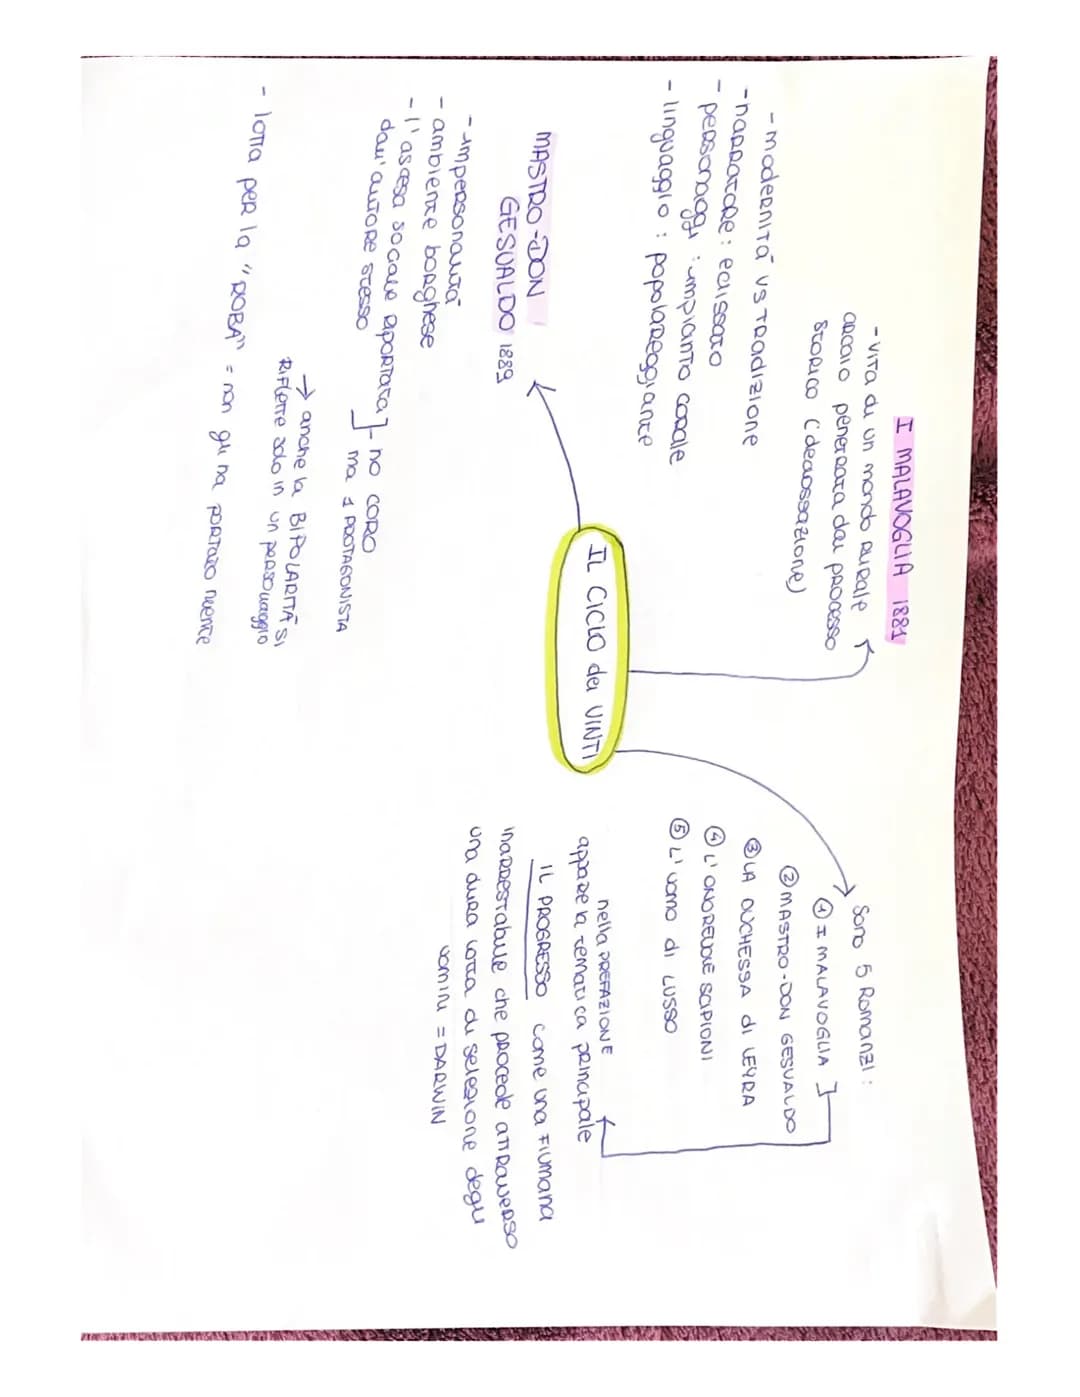 IL CICLO dei VINTI
I MALAVOGLIA 1881
- VITA di un mondo RURale
arcaio penetrata dal processo
STORICO (deaossazione)
- modernità vs TRadizione
- narratore: eclissato
- personaggi: impianto corale
- linguaggio: popolareggiante
MASTRO-DON
GESUALDO 1889
- impersonalità
- ambiente borghese
- l'ascesa sociale riportata ]- no CORO
dall'autore stesso ma 1 PROTAGONISTA
→ anche la BIPOLARITÀ si
RIFlette solo in un personaggio
- lotta per la "ROBA" = non gli ha portato niente
Sono 5 Romanzi:
① I MALAVOGLIA ]
② MASTRO-DON GESUALDO
③ LA DUCHESSA di LEYRA
④ L'ONOREVOLE SCIPIONI
⑤ L'uomo di LUSSO
nella PREFAZIONE
appare la tematica principale
IL PROGRESSO come una FIUMANA
inarrestabile che procede attraverso
una dura lotta di selezione degli
uomini = DARWIN